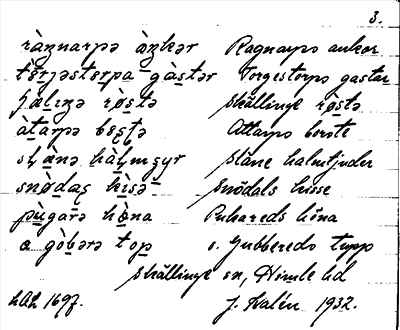 3.
ràŋnarpə àŋkər Ragnarps ankor
tɛ̀rjəstɛrpa gàstər Torgestorps gastar
ʃɛ̀lɩŋə rø̀stə skällinge röstə
àtarpə bɛʂtə Attarps borste
slɑ̀nə hàlmʂyr släne halmtjuder
snø̀daʂ hìsə snödals hisse
pùgarə hø̀na Pukareds höna
ɑ gòbərə top o. Gubbereds tupp
skällinge sn, Himle hd
LAL 1697. J. Kalén 1932.